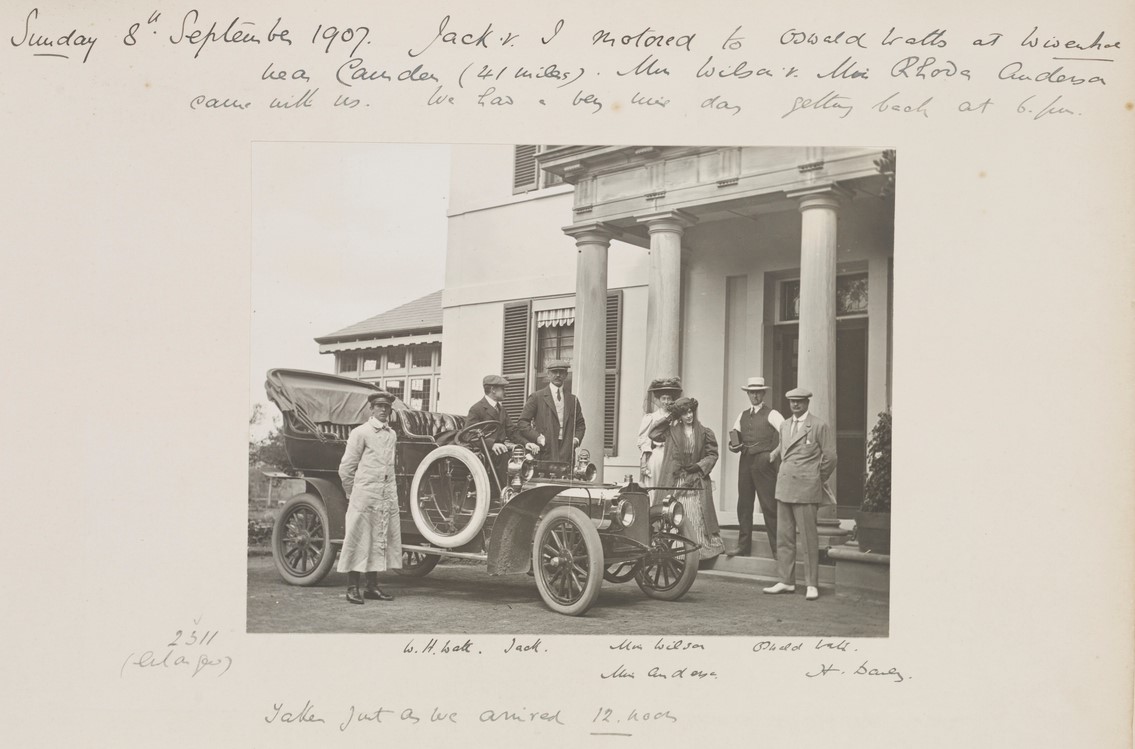 Sunday 8th September 1907. Jack & I motored to Oswald Watts at Wivenhoe
near Camden (41 miles). Miss Wilson & Miss Rhoda Anderson
came with us. We had a very nice day getting back at 6. pm.
2311
W. H. Watt. Jack. Miss Wilson Oswald Watt.
Miss Anderson. H. 
Taken just as we arrived 12. noon